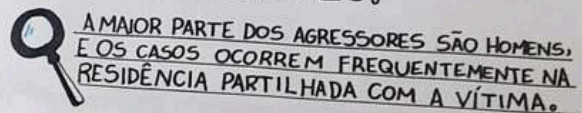 A MAIOR PARTE DOS AGRESSORES SÃO HOMENS,
E OS CASOS OCORREM FREQUENTEMENTE NA
RESIDÊNCIA PARTILHADA COM A VÍTIMA.